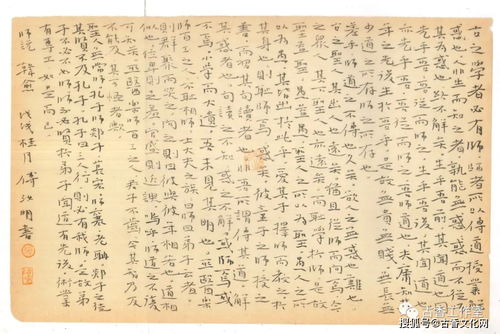 古之學者必有師師者所以傳道受業解
惑也人非生而知之者孰能無惑惑而不從師
其為惑也終不解矣生乎吾前其聞道也固
先乎吾吾從而師之生乎吾後其聞道也
亦先乎吾吾從而師之吾師道也夫庸知其
年之先後生於吾乎是故無貴無賤無長無
少道之所存師之所存也
嗟乎師道之不傳也久矣欲人之無惑也難也
古之聖人其出人也遠矣猶且從師而問焉今
之眾人其下聖人也亦遠矣而恥學於師是
故聖益聖愚益愚聖人之所以為聖愚人之所
以為愚其皆出於此乎愛其子擇師而教之於
其身也則恥師焉惑矣彼童子之師授之
書而習其句讀者也非吾所謂傳其道解
其惑者也句讀之不知惑之不解或師焉或
不焉小學而大遺吾未見其明也巫醫樂
師百工之人不恥相師士大夫之族曰師曰弟子云者
則群聚而笑之問之則曰彼與彼年相若也道相
似也位卑則足羞官盛則近諛嗚呼師道之不復
可知矣巫醫樂師百工之人君子不齒今其智乃反
不能及其可怪也歟
聖人無常師孔子師郯子萇弘師襄老聃郯子之徒
其賢不及孔子孔子曰三人行則必有我師是故弟
子不必不如師師不必賢於弟子聞道有先後術業
有專攻如是而已
師說 韓愈 戊戌桂月 傅汝明書
古香工作室
搜狐号@古香文化网